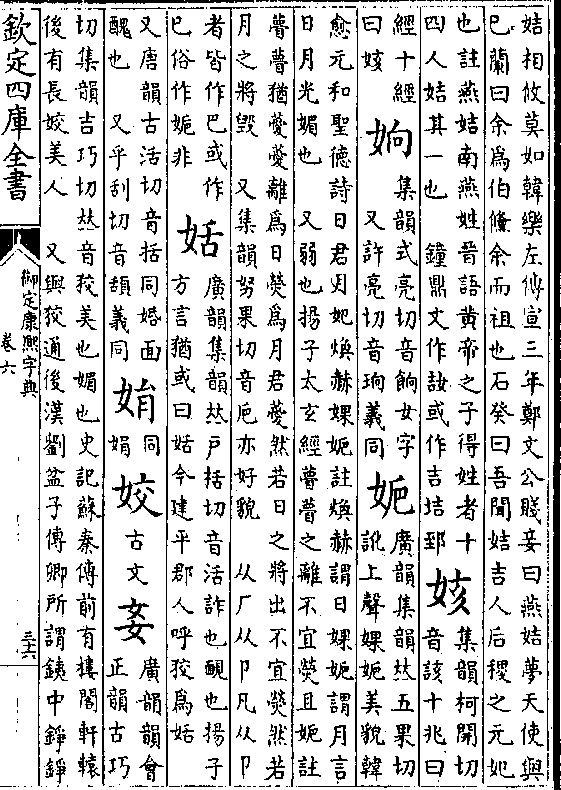 姞相攸莫如韓樂左傳宣三年鄭文公賤妾曰燕姞夢天使與
巳蘭曰余爲伯鯈余而祖也石癸曰吾聞姞吉人后稷之元妃
也註燕姞南燕姓晉語黄帝之子得姓者十
四人姞其一也 鐘鼎文作敁或作吉㚲郅 姟 集韻柯開切
音該十兆曰
經十經
曰姟 姠 集韻式亮切音餉女字
又許亮切音珦義同 妮 廣韻集韻𠀤五果切
訛上聲婐妮美貌韓
愈元和聖德詩日君月妃煥赫婐妮註煥赫謂日婐妮謂月言
日月光媚也 又弱也揚子太玄經瞢瞢之離不宜熒且妮註
瞢瞢猶薆薆離爲日熒爲月君薆然若日之將出不宜熒然若
月之將毀 又集韻努果切音扼亦好貌 从厂从卩凡从卩
者皆作巳或作
巳俗作妮非 姡 廣韻集韻𠀤戸括切音活詐也䩄也揚子
方言猶或曰姡今建平郡人呼狡爲姡
又唐韻古活切音括同婚面
醜也 又乎刮切音頢義同 姢 同
娟 姣 古文 㛍 廣韻韻會
正韻古巧
切集韻吉巧切𠀤音狡美也媚也史記蘇秦傳前有樓閣軒轅
後有長姣美人 又與狡通後漢劉盆子傳卿所謂鐵中錚錚
欽定四庫全書
御定康熙字典
卷六
三十六